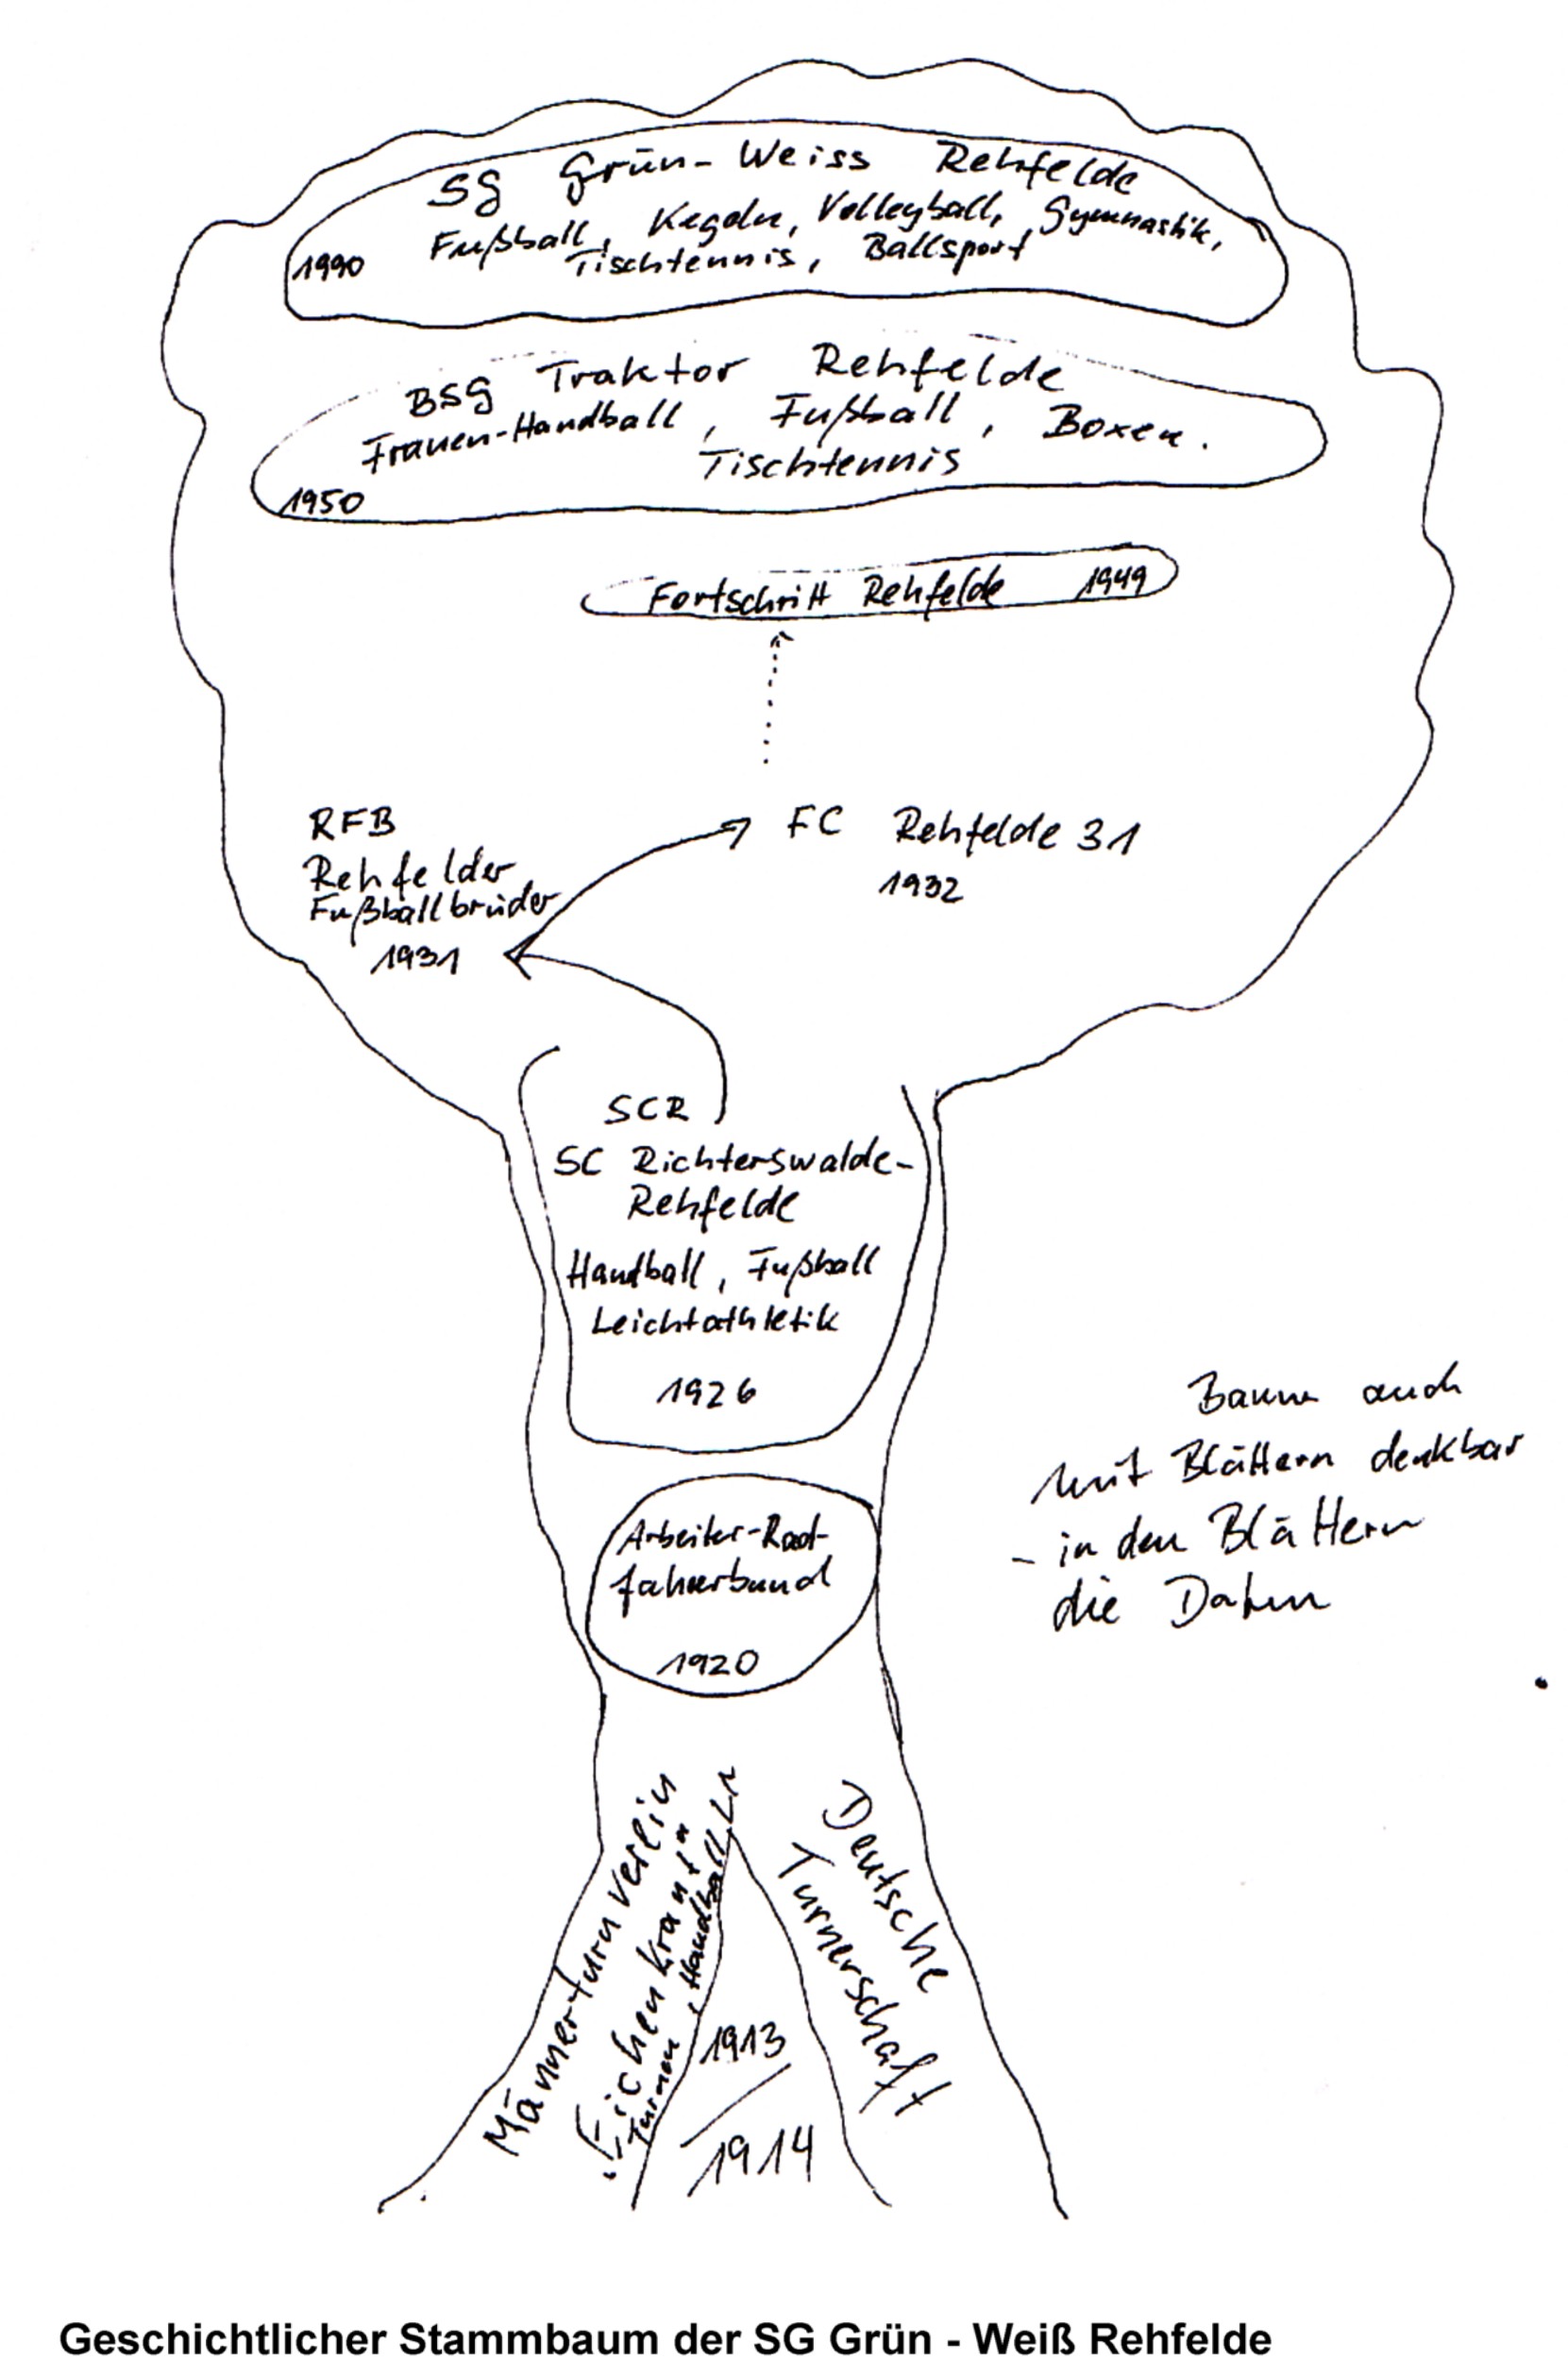 SG Grün-Weiss Rehfelde
Fußball, Kegeln, Volleyball, Gymnastik,
Tischtennis, Ballsport
1990
BSG Traktor Rehfelde
Frauen-Handball, Fußball, Boxen.
Tischtennis
1950
Fortschritt Rehfelde 1949
RFB
Rehfelder
Fußballbrüder
1931
FC Rehfelde 31
1932
SCR
SC Richterswalde-
Rehfelde
Handball, Fußball
Leichtathletik
1926
Baum auch
mit Blättern denkbar
- in den Blättern
die Daten
Arbeiter-Rad-
fahrerbund
1920
Männerturnverein
"Eichenkranz"
Turnen, Handball
Deutsche
Turnerschaft
1913
1914
Geschichtlicher Stammbaum der SG Grün - Weiß Rehfelde